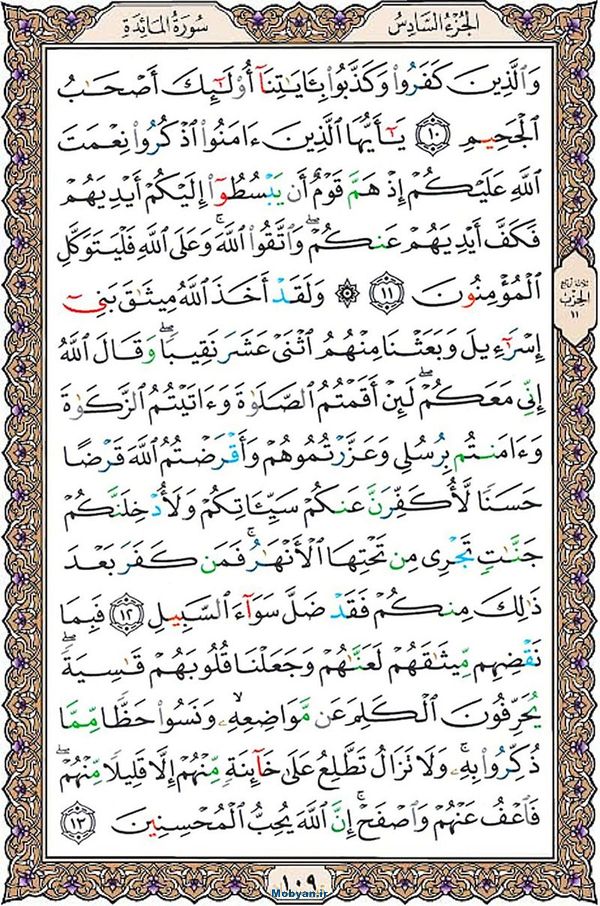 الجُزءُ السَّادِسُ
سُورَةُ المَائِدَةِ
وَالَّذِينَ كَفَرُوا۟ وَكَذَّبُوا۟ بِـَٔايَـٰتِنَآ أُو۟لَـٰٓئِكَ أَصْحَـٰبُ
ٱلْجَحِيمِ ١٠ يَـٰٓأَيُّهَا ٱلَّذِينَ ءَامَنُوا۟ ٱذْكُرُوا۟ نِعْمَتَ
ٱللَّهِ عَلَيْكُمْ إِذْ هَمَّ قَوْمٌ أَن يَبْسُطُوٓا۟ إِلَيْكُمْ أَيْدِيَهُمْ
فَكَفَّ أَيْدِيَهُمْ عَنكُمْ ۖ وَٱتَّقُوا۟ ٱللَّهَ ۚ وَعَلَى ٱللَّهِ فَلْيَتَوَكَّلِ
ٱلْمُؤْمِنُونَ ١١ ۞ وَلَقَدْ أَخَذَ ٱللَّهُ مِيثَـٰقَ بَنِىٓ
إِسْرَٰٓءِيلَ وَبَعَثْنَا مِنْهُمُ ٱثْنَىْ عَشَرَ نَقِيبًا ۖ وَقَالَ ٱللَّهُ
إِنِّى مَعَكُمْ ۖ لَئِنْ أَقَمْتُمُ ٱلصَّلَوٰةَ وَءَاتَيْتُمُ ٱلزَّكَوٰةَ
وَءَامَنتُم بِرُسُلِى وَعَزَّرْتُمُوهُمْ وَأَقْرَضْتُمُ ٱللَّهَ قَرْضًا
حَسَنًا لَّأُكَفِّرَنَّ عَنكُمْ سَيِّـَٔاتِكُمْ وَلَأُدْخِلَنَّكُمْ
جَنَّـٰتٍ تَجْرِى مِن تَحْتِهَا ٱلْأَنْهَـٰرُ ۚ فَمَن كَفَرَ بَعْدَ
ذَٰلِكَ مِنكُمْ فَقَدْ ضَلَّ سَوَآءَ ٱلسَّبِيلِ ١٢ فَبِمَا
نَقْضِهِم مِّيثَـٰقَهُمْ لَعَنَّـٰهُمْ وَجَعَلْنَا قُلُوبَهُمْ قَـٰسِيَةً ۖ
يُحَرِّفُونَ ٱلْكَلِمَ عَن مَّوَاضِعِهِۦ ۙ وَنَسُوا۟ حَظًّا مِّمَّا
ذُكِّرُوا۟ بِهِۦ ۚ وَلَا تَزَالُ تَطَّلِعُ عَلَىٰ خَآئِنَةٍ مِّنْهُمْ إِلَّا قَلِيلًا مِّنْهُمْ ۖ
فَٱعْفُ عَنْهُمْ وَٱصْفَحْ ۚ إِنَّ ٱللَّهَ يُحِبُّ ٱلْمُحْسِنِينَ ١٣
الحِزْب
١١
١٠٩
Mobyan.ir